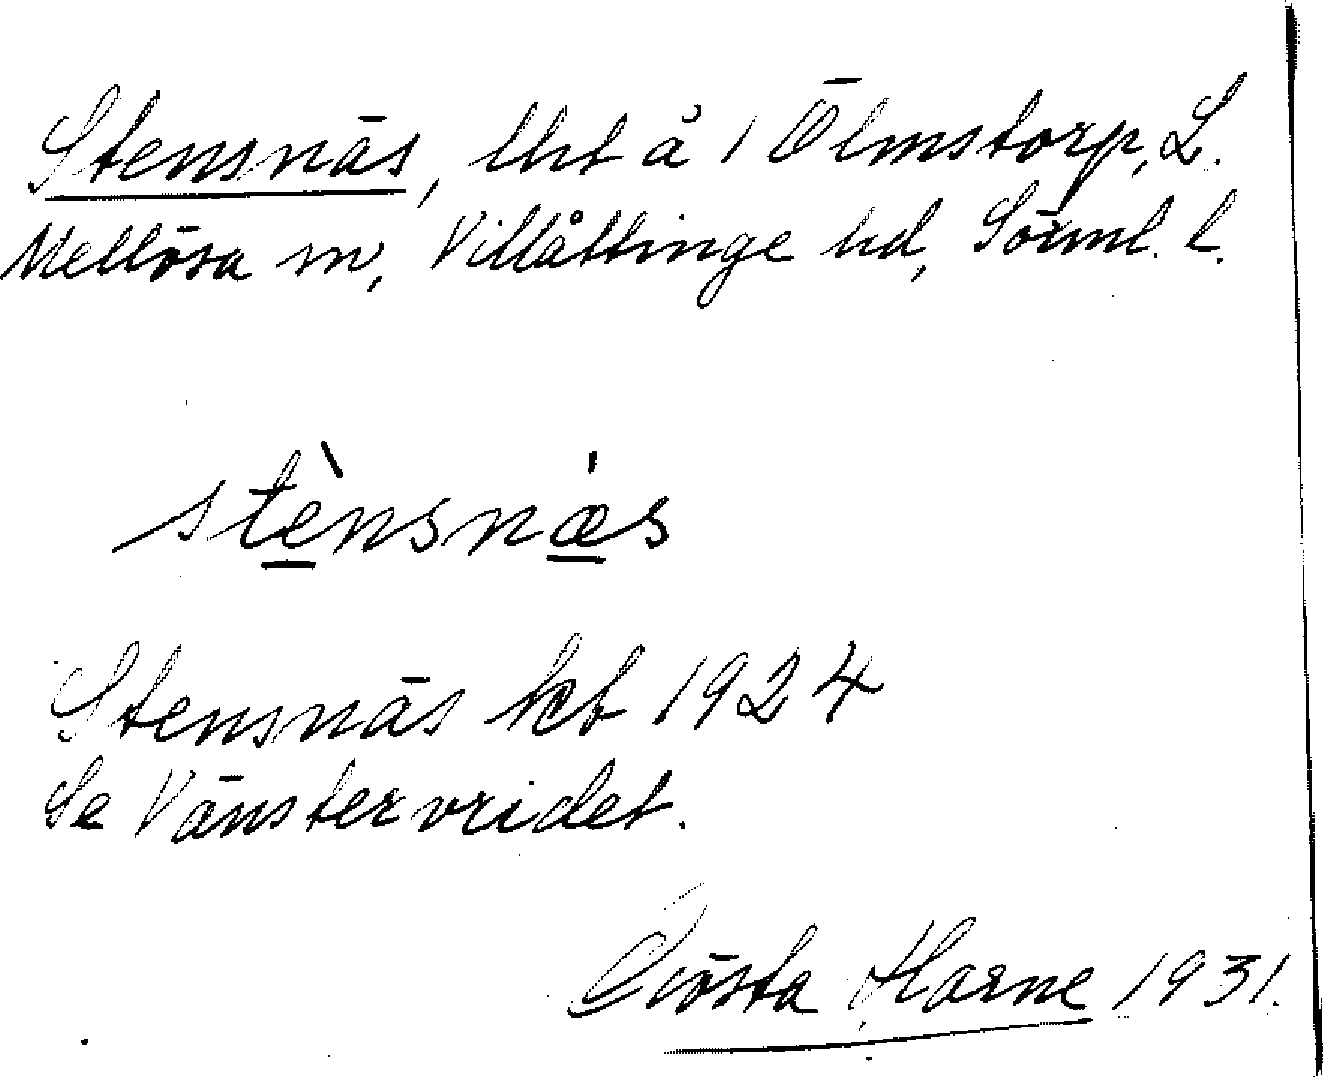 Stensnäs, lht å 1 Ölmstorp, L.
Mellösa sn, Villåttinge hd, Sörml. l.
stènsnæs
Stensnäs kbf 1924
Se Vänstervridet.
Gösta Harne 1931.